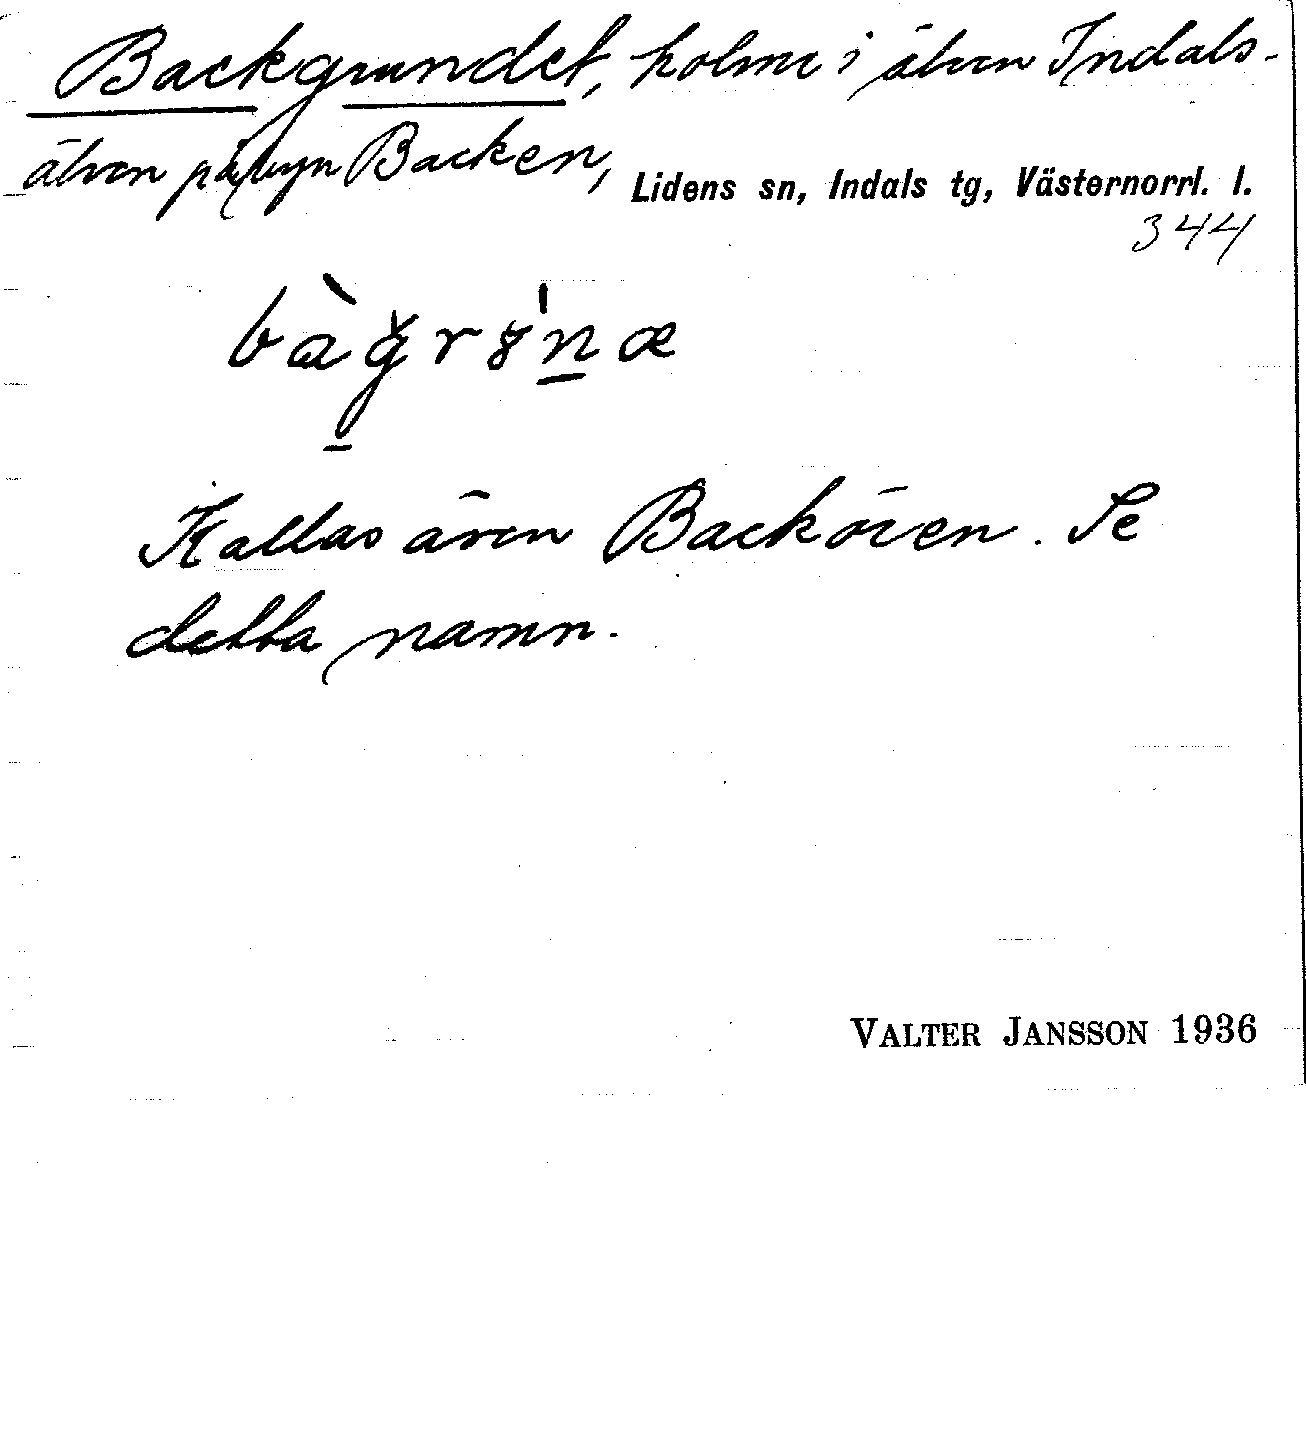 Backgrundet, holme i älven Indals-
älven på byn Backen,
Lidens sn, Indals tg, Västernorrl. l.
344
Kallas även Backören. Se
detta namn.
VALTER JANSSON 1936